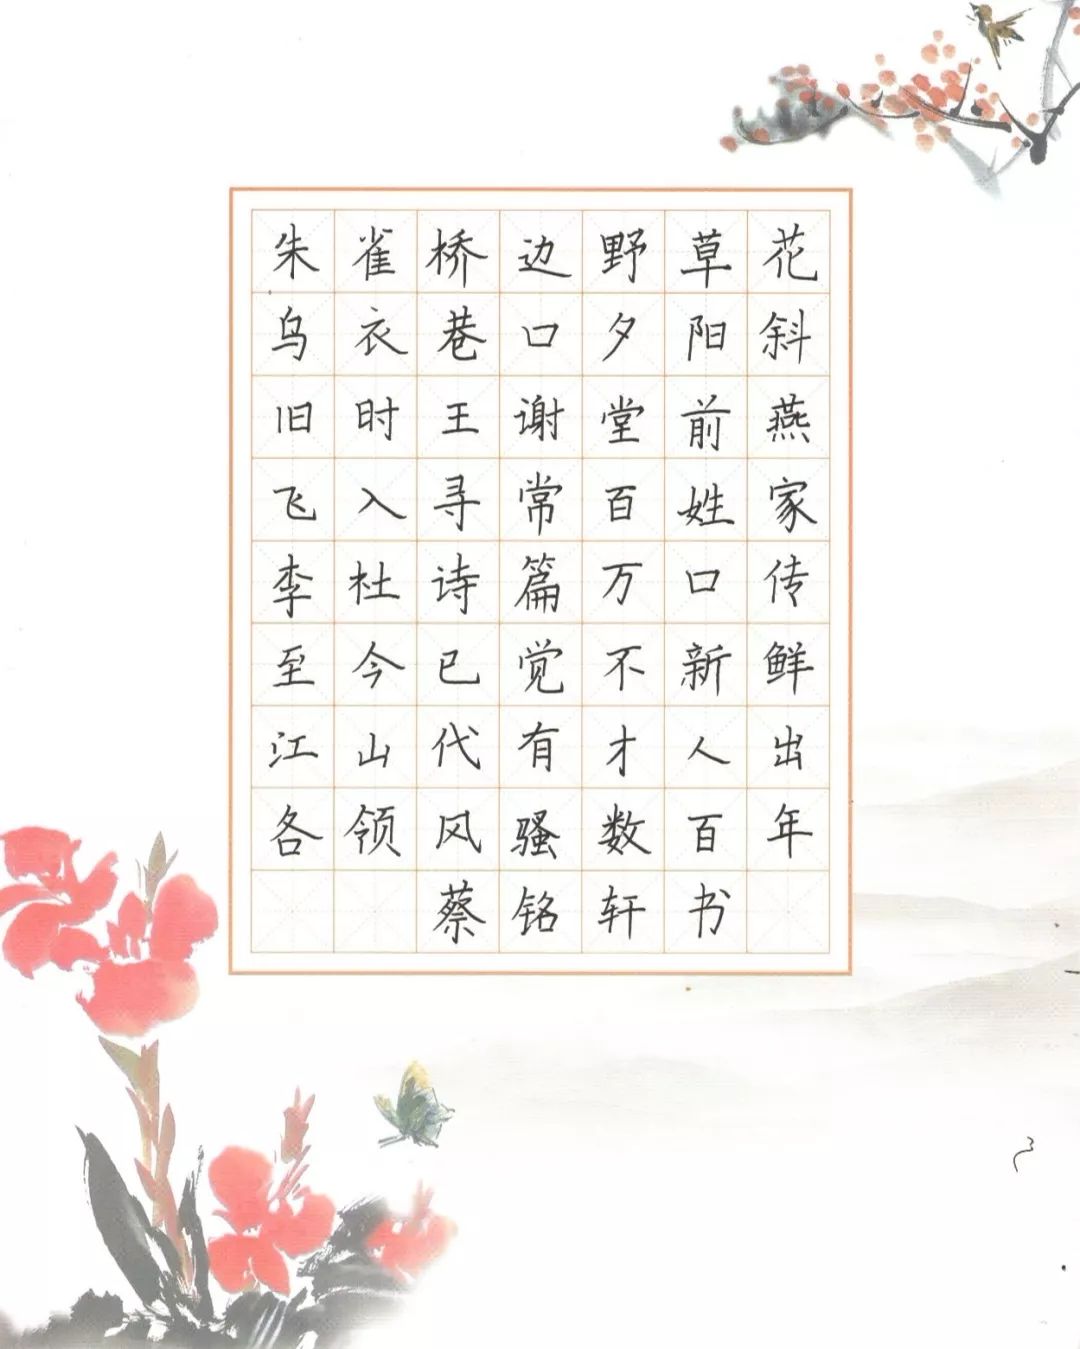 朱雀桥边野草花
乌衣巷口夕阳斜
旧时王谢堂前燕
飞入寻常百姓家
李杜诗篇万口传
至今已觉不新鲜
江山代有才人出
各领风骚数百年
蔡铭轩书